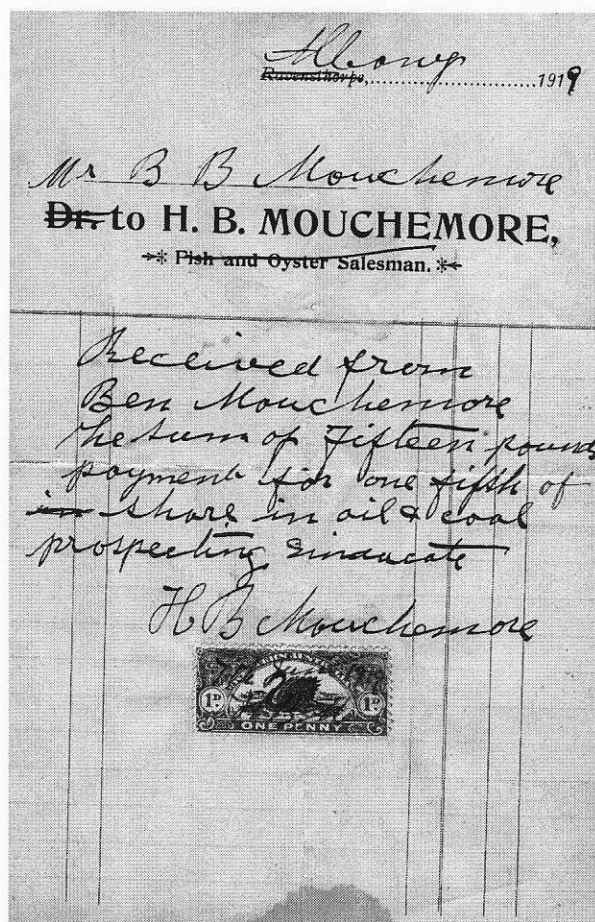 Albany
Ravensthorpe, 1919
Mr B B Mouchemore
Dr. to H. B. MOUCHEMORE,
Fish and Oyster Salesman.
Received from
Ben Mouchemore
the sum of Fifteen pounds
payment for one fifth of
in share in oil & coal
prospecting Sindacate
H B Mouchemore
1D 1D
ONE PENNY